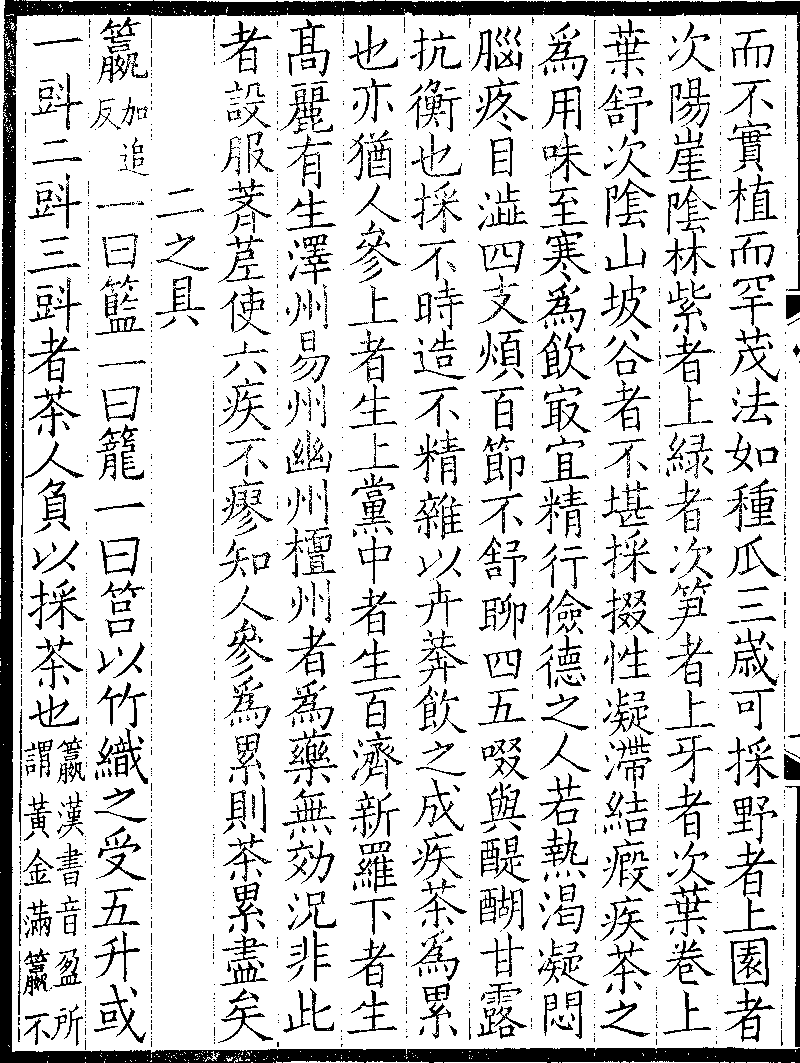 而不實植而罕茂法如種瓜三歲可採野者上園者
次陽崖陰林紫者上緑者次笋者上牙者次葉卷上
葉舒次陰山坡谷者不堪採掇性凝滯結瘕疾茶之
爲用味至寒爲飲㝡宜精行儉德之人若熱渴凝悶
腦疼目澁四支煩百節不舒聊四五啜與醍醐甘露
抗衡也採不時造不精雜以卉莽飲之成疾茶爲累
也亦猶人參上者生上黨中者生百濟新羅下者生
髙麗有生澤州易州幽州檀州者爲藥無効況非此
者設服薺苨使六疾不瘳知人參爲累則茶累盡矣
二之具
籯加追反一曰籃一曰籠一曰筥以竹織之受五升或
一㪷二㪷三㪷者茶人負以採茶也籯漢書音盈所謂黃金滿籯不